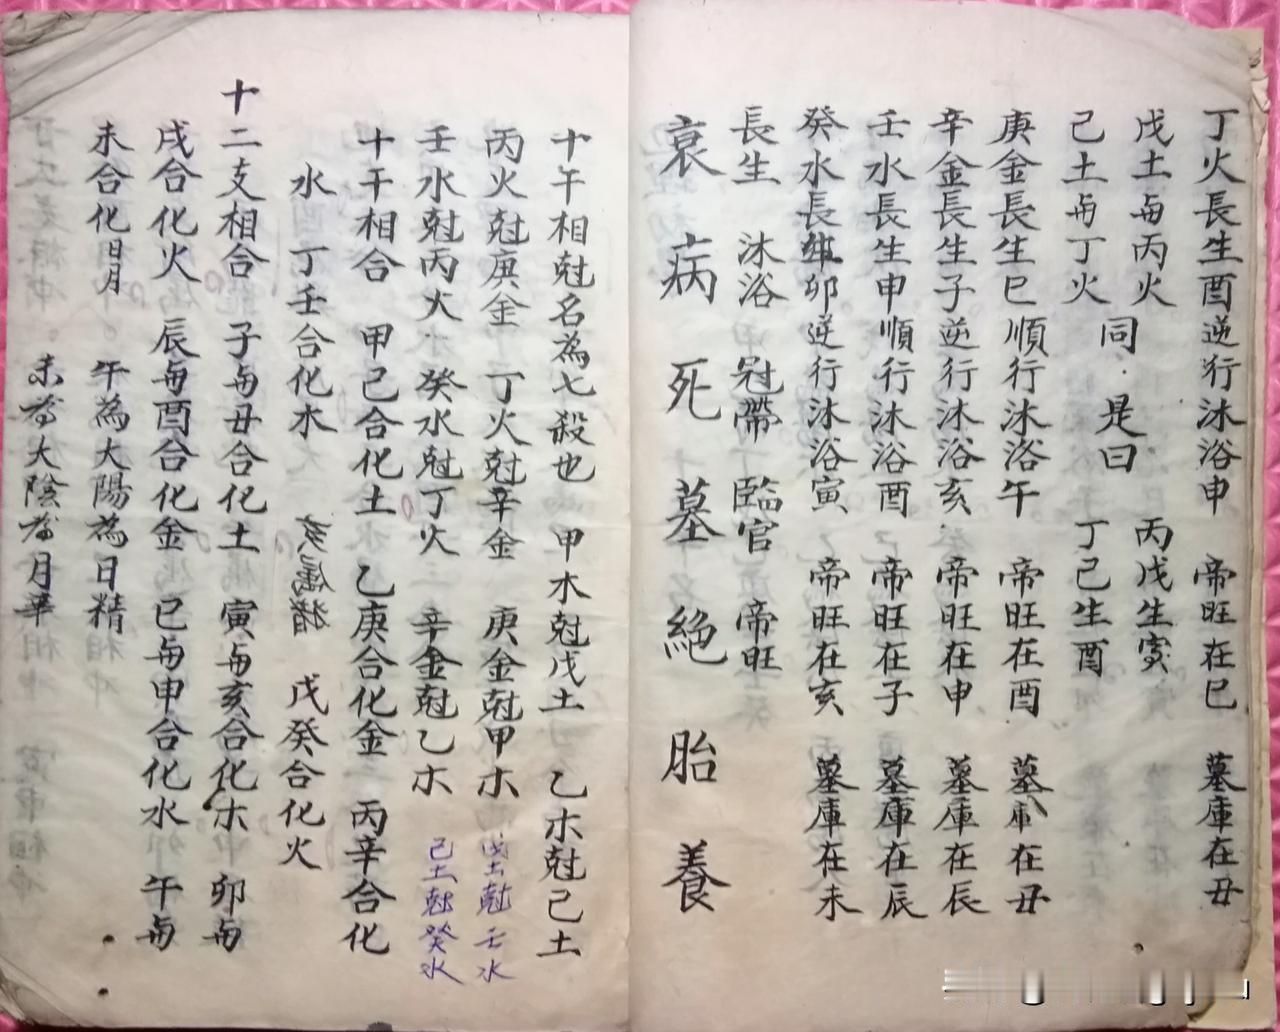 丁火長生酉逆行沐浴申 帝旺在巳 墓庫在丑
戊土與丙火 同 是曰 丙戊生寅
己土與丁火 丁己生酉
庚金長生巳順行沐浴午 帝旺在酉 墓庫在丑
辛金長生子逆行沐浴亥 帝旺在申 墓庫在辰
壬水長生申順行沐浴酉 帝旺在子 墓庫在辰
癸水長生卯逆行沐浴寅 帝旺在亥 墓庫在未
長生 沐浴 冠帶 臨官 帝旺
衰 病 死 墓 絕 胎 養
十午相尅名為七殺也 甲木尅戊土 乙木尅己土
丙火尅庚金 丁火尅辛金 庚金尅甲木 戊土尅壬水
壬水尅丙火 癸水尅丁火 辛金尅乙木 己土尅癸水
十干相合 甲己合化土 乙庚合化金 丙辛合化
水 丁壬合化木 亥屬猪 戊癸合化火
十二支相合 子與丑合化土 寅與亥合化木 卯與
戌合化火 辰與酉合化金 巳與申合化水 午與
未合化日月 午為大陽為日精
未為大陰為月華